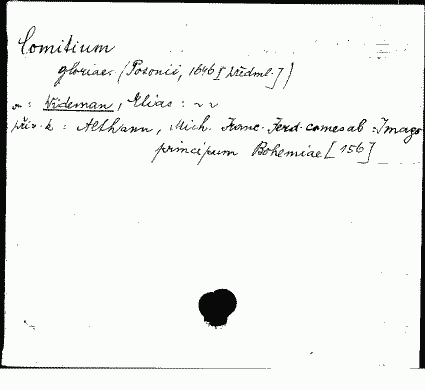 Comitium
gloriae. (Posonii, 1646 [předml.])
in: Wideman, Elias: ~ ~
přív. k: Althann, Mich. Franc. Ferd. comes ab: Imago
principum Bohemiae [156]